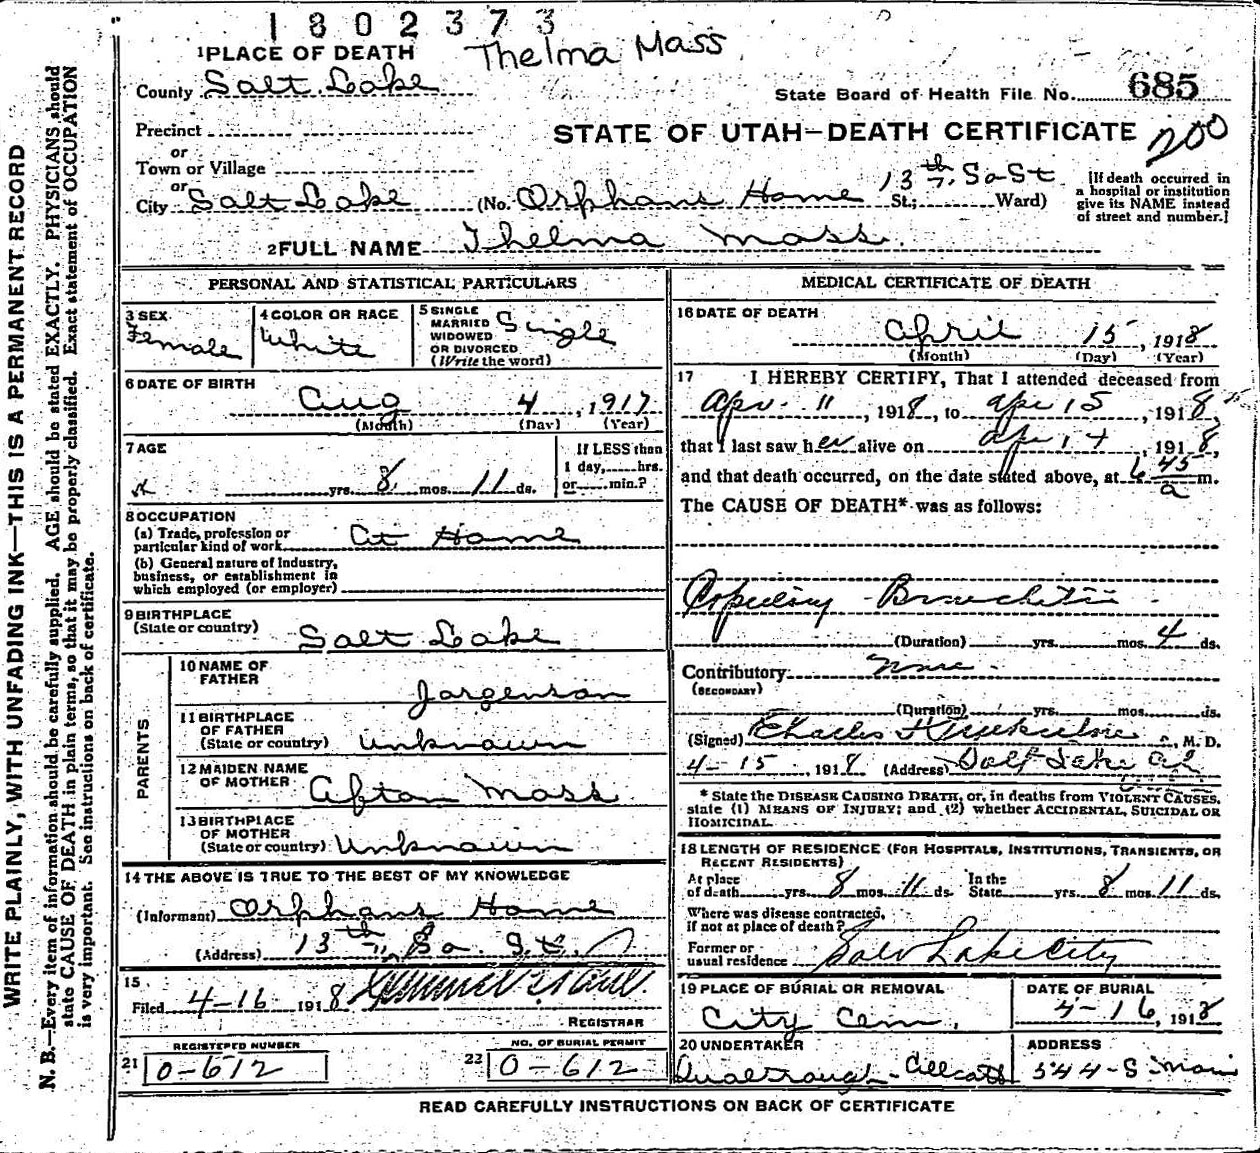 1802373
Thelma Mass
1 PLACE OF DEATH
County Salt Lake
State Board of Health File No. 685
Precinct
or
STATE OF UTAH—DEATH CERTIFICATE
200
Town or Village
or
City Salt Lake (No. Orphans Home 13th So St St.; Ward)
[If death occurred in a hospital or institution give its NAME instead of street and number.]
2 FULL NAME Thelma Mass.
PERSONAL AND STATISTICAL PARTICULARS
3 SEX Female
4 COLOR OR RACE White
5 SINGLE MARRIED WIDOWED OR DIVORCED (Write the word) Single
6 DATE OF BIRTH
Aug 4, 1917
(Month) (Day) (Year)
7 AGE
yrs. 8 mos. 11 ds.
If LESS than 1 day, hrs. or min.?
8 OCCUPATION
(a) Trade, profession or
particular kind of work At Home
(b) General nature of Industry,
business, or establishment in
which employed (or employer)
9 BIRTHPLACE
(State or country) Salt Lake
PARENTS
10 NAME OF
FATHER Jorgenson
11 BIRTHPLACE
OF FATHER
(State or country) Unknown
12 MAIDEN NAME
OF MOTHER Afton Mass
13 BIRTHPLACE
OF MOTHER
(State or country) Unknown
14 THE ABOVE IS TRUE TO THE BEST OF MY KNOWLEDGE
(Informant) Orphans Home
(Address) 13th So. St.
15
Filed 4-16 1918
REGISTRAR
REGISTERED NUMBER
21 0-612
NO. OF BURIAL PERMIT
22 0-612
MEDICAL CERTIFICATE OF DEATH
16 DATE OF DEATH
April 15, 1918
(Month) (Day) (Year)
17 I HEREBY CERTIFY, That I attended deceased from
Apr. 11, 1918, to Apr 15, 1918,
that I last saw her alive on Apr 14 1918,
and that death occurred, on the date stated above, at 6 45 a m.
The CAUSE OF DEATH* was as follows:
Bronchitis
(Duration) yrs. mos. 4 ds.
Contributory None
(SECONDARY)
(Duration) yrs. mos. ds.
(Signed) Charles , M. D.
4-15, 1918 (Address) Salt Lake
* State the DISEASE CAUSING DEATH, or, in deaths from VIOLENT CAUSES,
state (1) MEANS OF INJURY; and (2) whether ACCIDENTAL, SUICIDAL OR
HOMICIDAL.
18 LENGTH OF RESIDENCE (FOR HOSPITALS, INSTITUTIONS, TRANSIENTS, OR
RECENT RESIDENTS)
At place
of death yrs. 8 mos. 11 ds. In the State yrs. 8 mos. 11 ds.
Where was disease contracted,
if not at place of death?
Former or
usual residence Salt Lake City
19 PLACE OF BURIAL OR REMOVAL
City Cem.
DATE OF BURIAL
4-16, 1918
20 UNDERTAKER
ADDRESS
544-S Main
READ CAREFULLY INSTRUCTIONS ON BACK OF CERTIFICATE
WRITE PLAINLY, WITH UNFADING INK—THIS IS A PERMANENT RECORD
N. B.—Every item of information should be carefully supplied. AGE should be stated EXACTLY. PHYSICIANS should
state CAUSE OF DEATH in plain terms, so that it may be properly classified. Exact statement of OCCUPATION
is very important. See instructions on back of certificate.